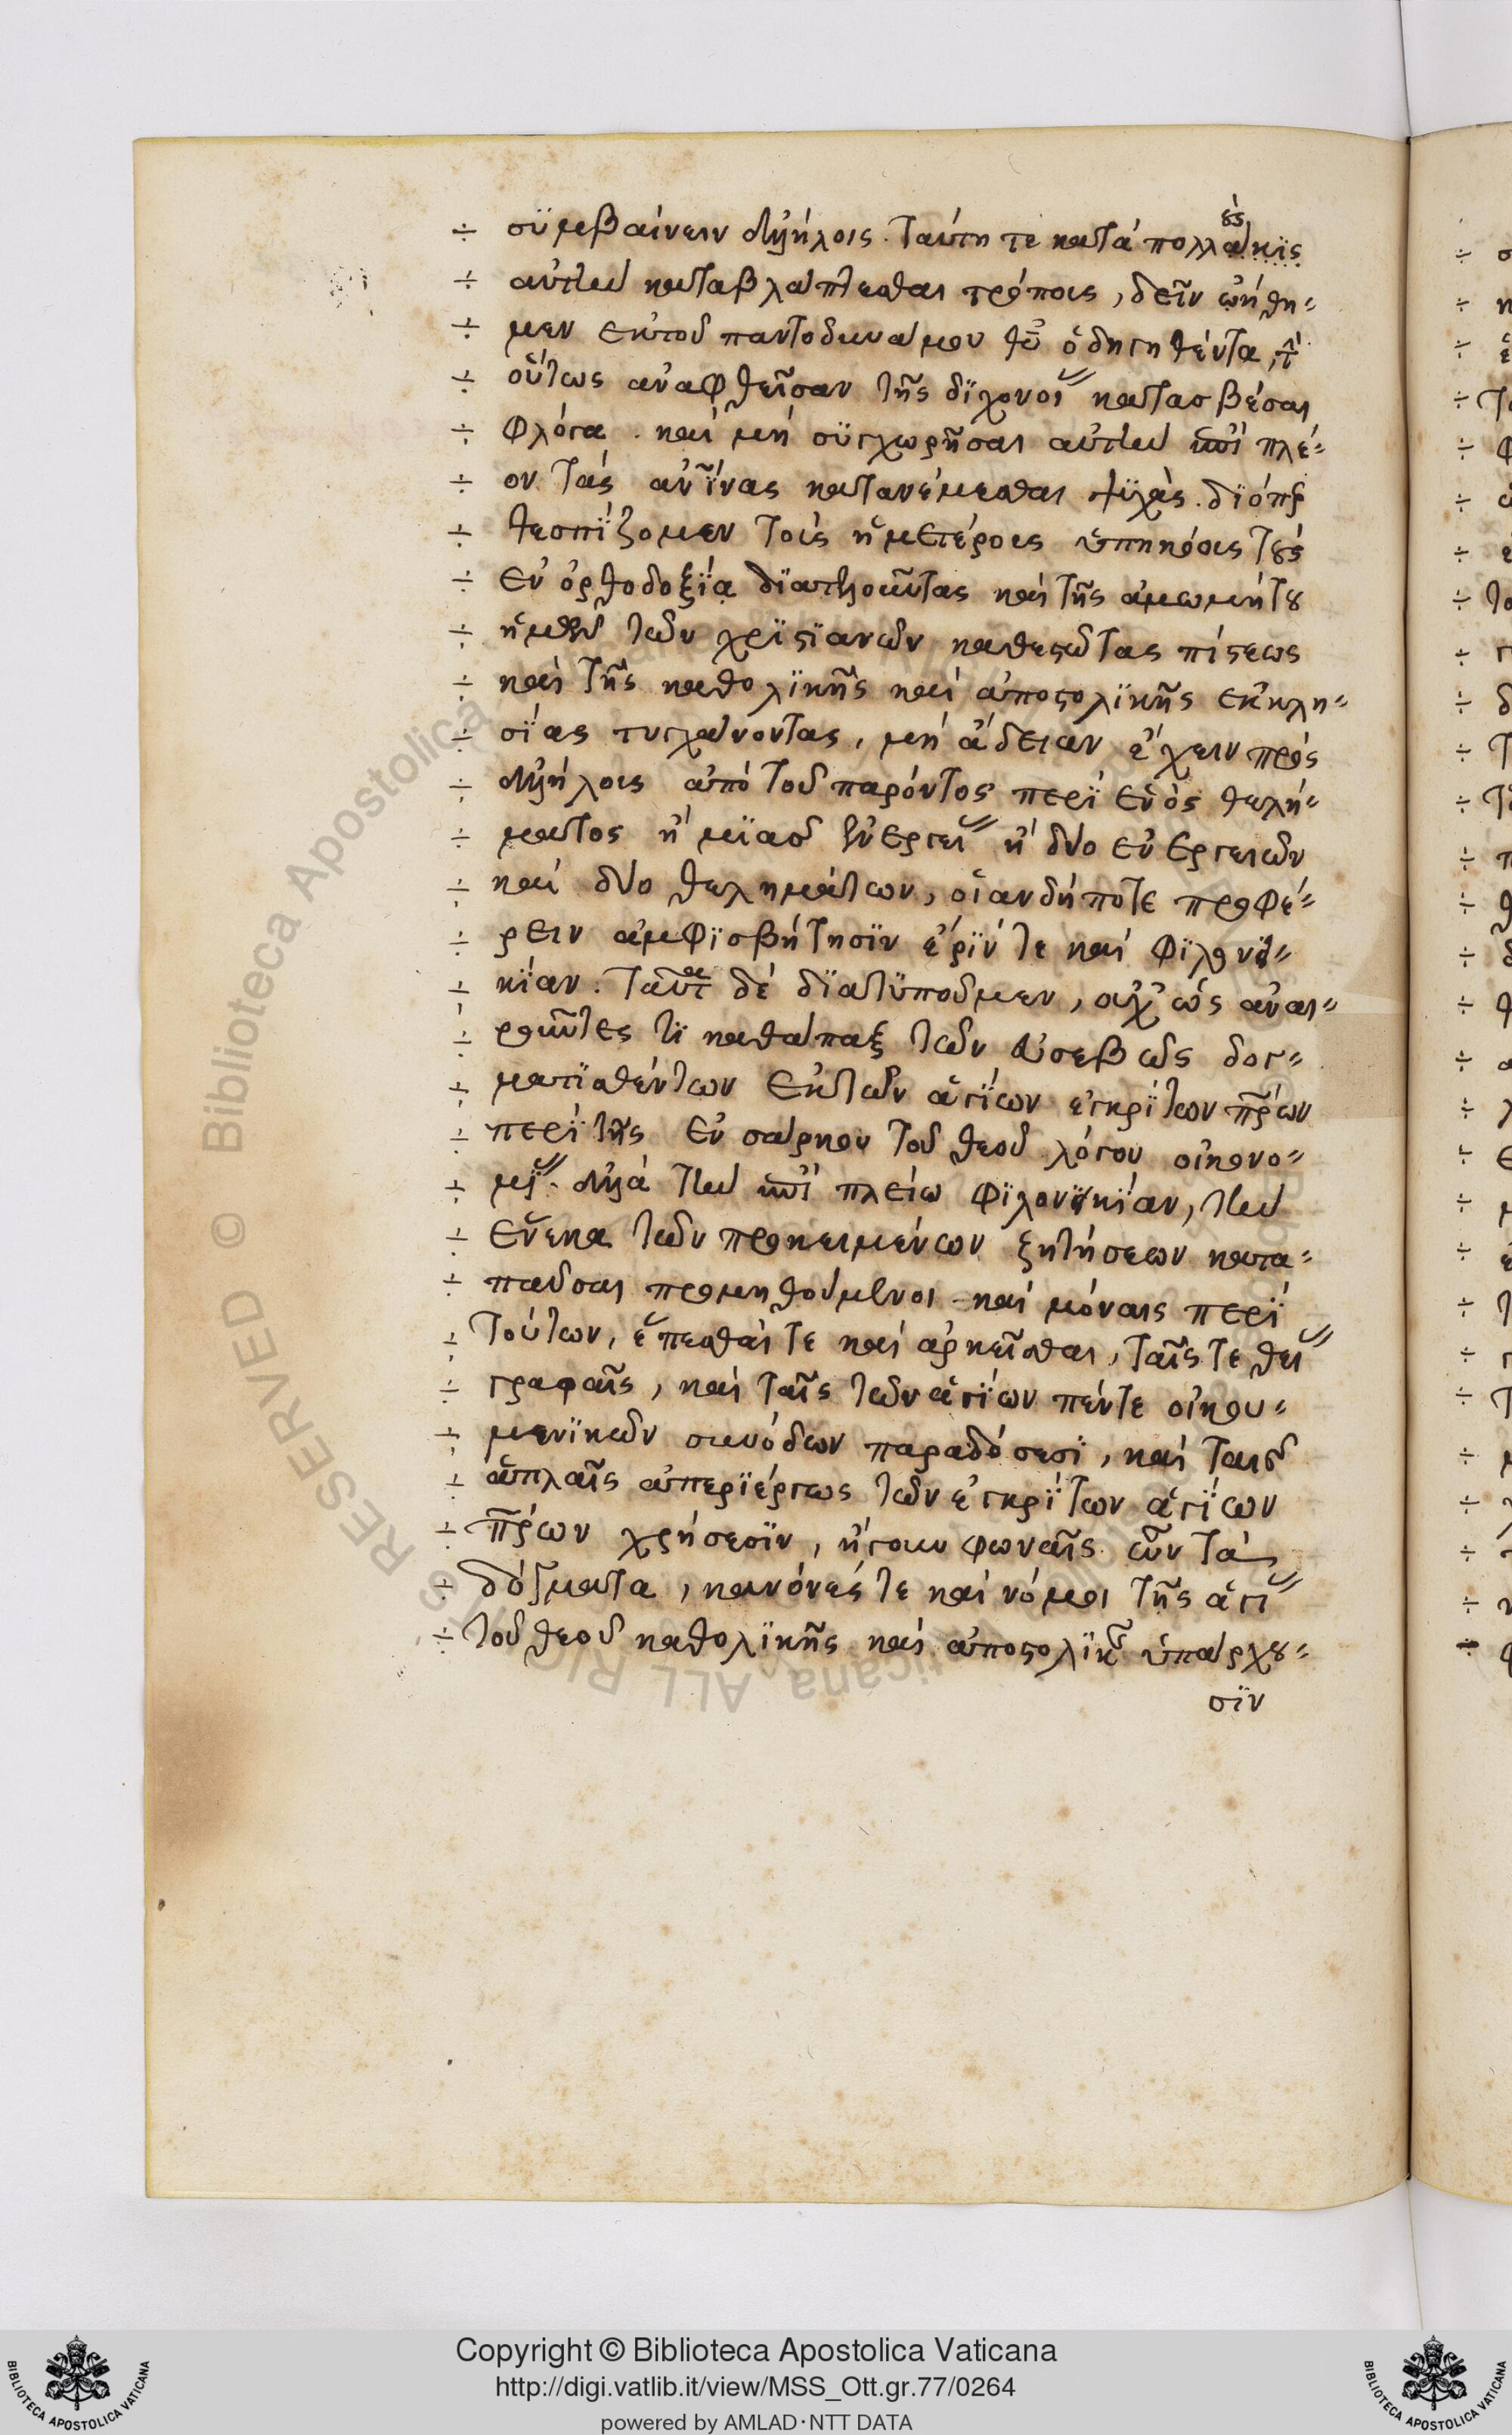 ÷ συμβαίνειν ἀλλήλοις. Ταύτη τε κατὰ πολλοὺς
÷ αὐτῶν καταβλάπτεσθαι τρόπους, δεῖν ὠήθη-
÷ μεν ἐκ τοῦ παντοδυνάμου θῦ ὁδηγηθέντα, τὴ
÷ οὕτως ἀναφθεῖσαν τῆς διχονοί κατασβέσαι
÷ φλόγα. καὶ μὴ συγχωρῆσαι αὐτὴν ἐπὶ πλέ-
÷ ον τὰς ἀνῖνας κατανέμεσθαι ψυχὰς. διόπερ
÷ θεσπίζομεν τοὺς ἡμετέρους ὑπηκόους τοὺς
÷ ἐν ὀρθοδοξία διατελοῦντας καὶ τῆς ἀμωμήτου
÷ ἡμῶν τῶν χριστιανῶν καθεστῶτας πίστεως
÷ καὶ τῆς καθολικῆς καὶ ἀποστολικῆς ἐκκλη-
÷ σίας τυγχάνοντας, μὴ ἄδειαν ἔχειν πρὸς
÷ ἀλλήλους ἀπὸ τοῦ παρόντος περὶ ἑνὸς θελή-
÷ ματος ἢ μιᾶς ἐνεργεί ἢ δύο ἐνεργειῶν
÷ καὶ δύο θελημάτων, οἱανδήποτε προφέ-
÷ ρειν ἀμφισβήτησιν ἔριν τε καὶ φιλονι-
÷ κίαν. Ταῦτα δὲ διατυποῦμεν, οὐχ ὡς ἀναι-
÷ ροῦντες τι καθάπαξ τῶν εὐσεβῶς δογ-
÷ ματισθέντων ἐκ τῶν ἁγίων ἐγκρίτων πρ̃ων
÷ περὶ τῆς ἐν σάρκου τοῦ θεοῦ λόγου οἰκονο-
÷ μί. ἀλλὰ τὴν ἐπὶ πλείω φιλονικίαν, τὴν
÷ ἕνεκα τῶν προκειμένων ζητήσεων κατα-
÷ παῦσαι προμηθούμενοι καὶ μόναις περὶ
÷ τούτων, ἕπεσθαί τε καὶ ἀρκεῖσθαι, ταῖς τε θεί
÷ γραφαῖς, καὶ ταῖς τῶν ἁγίων πέντε οἰκου-
÷ μενικῶν συνόδων παραδόσεσι, καὶ ταῖς
÷ ἁπλαῖς ἀπεριέργως τῶν ἐγκρίτων ἁγίων
÷ πρ̃ων χρήσεσιν, ἤγουν φωναῖς ὧν τὰ
÷ δόγματα, κανόνες τε καὶ νόμοι τῆς ἁγί
÷ τοῦ θεοῦ καθολικῆς καὶ ἀποστολικῆς ὑπάρχου-
σιν
Copyright © Biblioteca Apostolica Vaticana
http://digi.vatlib.it/view/MSS_Ott.gr.77/0264
powered by AMLAD·NTT DATA